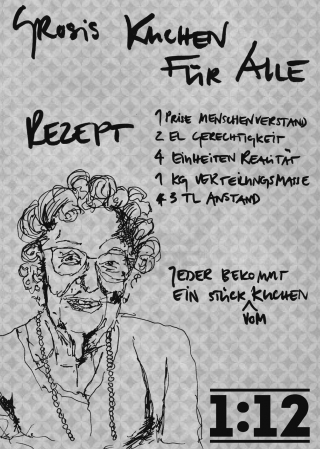 Grosis Kuchen
Für Alle
Rezept
1 Prise Menschenverstand
2 EL Gerechtigkeit
4 Einheiten Realität
1 KG Verteilungsmasse
3 TL Anstand
Jeder bekommt
ein Stück vom Kuchen
1:12